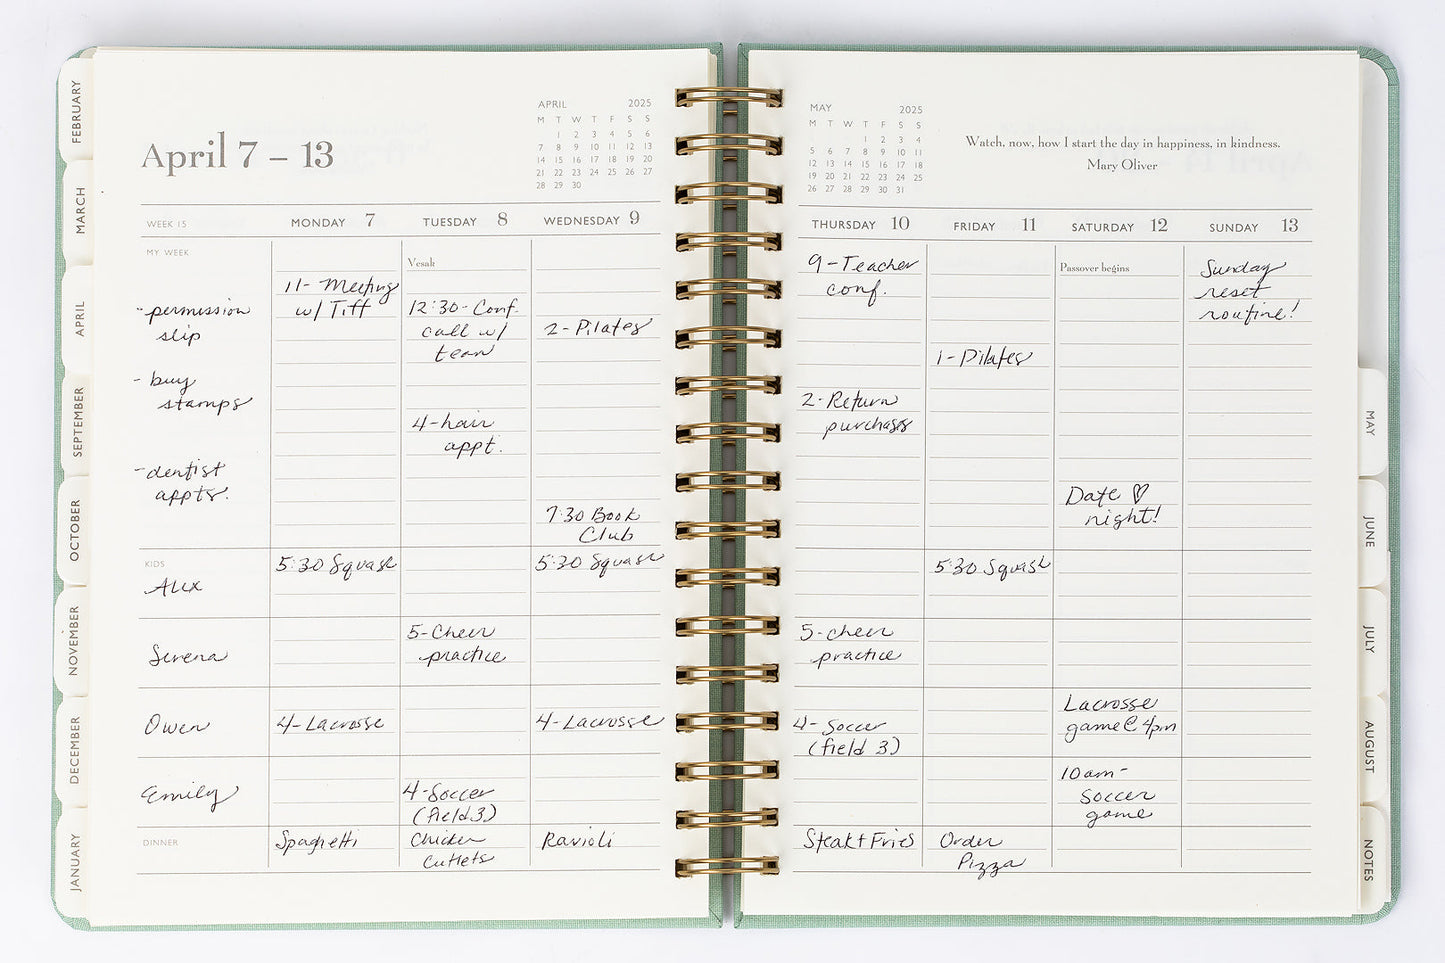 FEBRUARY
MARCH
APRIL
SEPTEMBER
OCTOBER
NOVEMBER
DECEMBER
JANUARY
April 7 – 13
APRIL 2025
M T W T F S S
1 2 3 4 5 6
7 8 9 10 11 12 13
14 15 16 17 18 19 20
21 22 23 24 25 26 27
28 29 30
WEEK 15 MONDAY 7 TUESDAY 8 WEDNESDAY 9
MY WEEK
- permission
slip
- buy
stamps
- dentist
appts.
11- Meeting
w/ Tiff
Vesak
12:30-Conf.
call w/
team
4-hair
appt.
2-Pilates
7:30 Book
Club
KIDS
Alex
5:30 Squash
5:30 Squash
Serena
5-Cheer
practice
Owen
4-Lacrosse
4-Lacrosse
Emily
4-Soccer
(field 3)
DINNER
Spaghetti
Chicken
Cutlets
Ravioli
MAY 2025
M T W T F S S
1 2 3 4
5 6 7 8 9 10 11
12 13 14 15 16 17 18
19 20 21 22 23 24 25
26 27 28 29 30 31
Watch, now, how I start the day in happiness, in kindness.
Mary Oliver
THURSDAY 10 FRIDAY 11 SATURDAY 12 SUNDAY 13
9-Teacher
conf.
2-Return
purchases
1-Pilates
Passover begins
Date ♡
night!
Sunday
reset
routine!
5:30 Squash
5-cheer
practice
4-Soccer
(field 3)
Lacrosse
game@4pm
10am-
Soccer
game
Steak+Fries
Order
Pizza
MAY
JUNE
JULY
AUGUST
NOTES